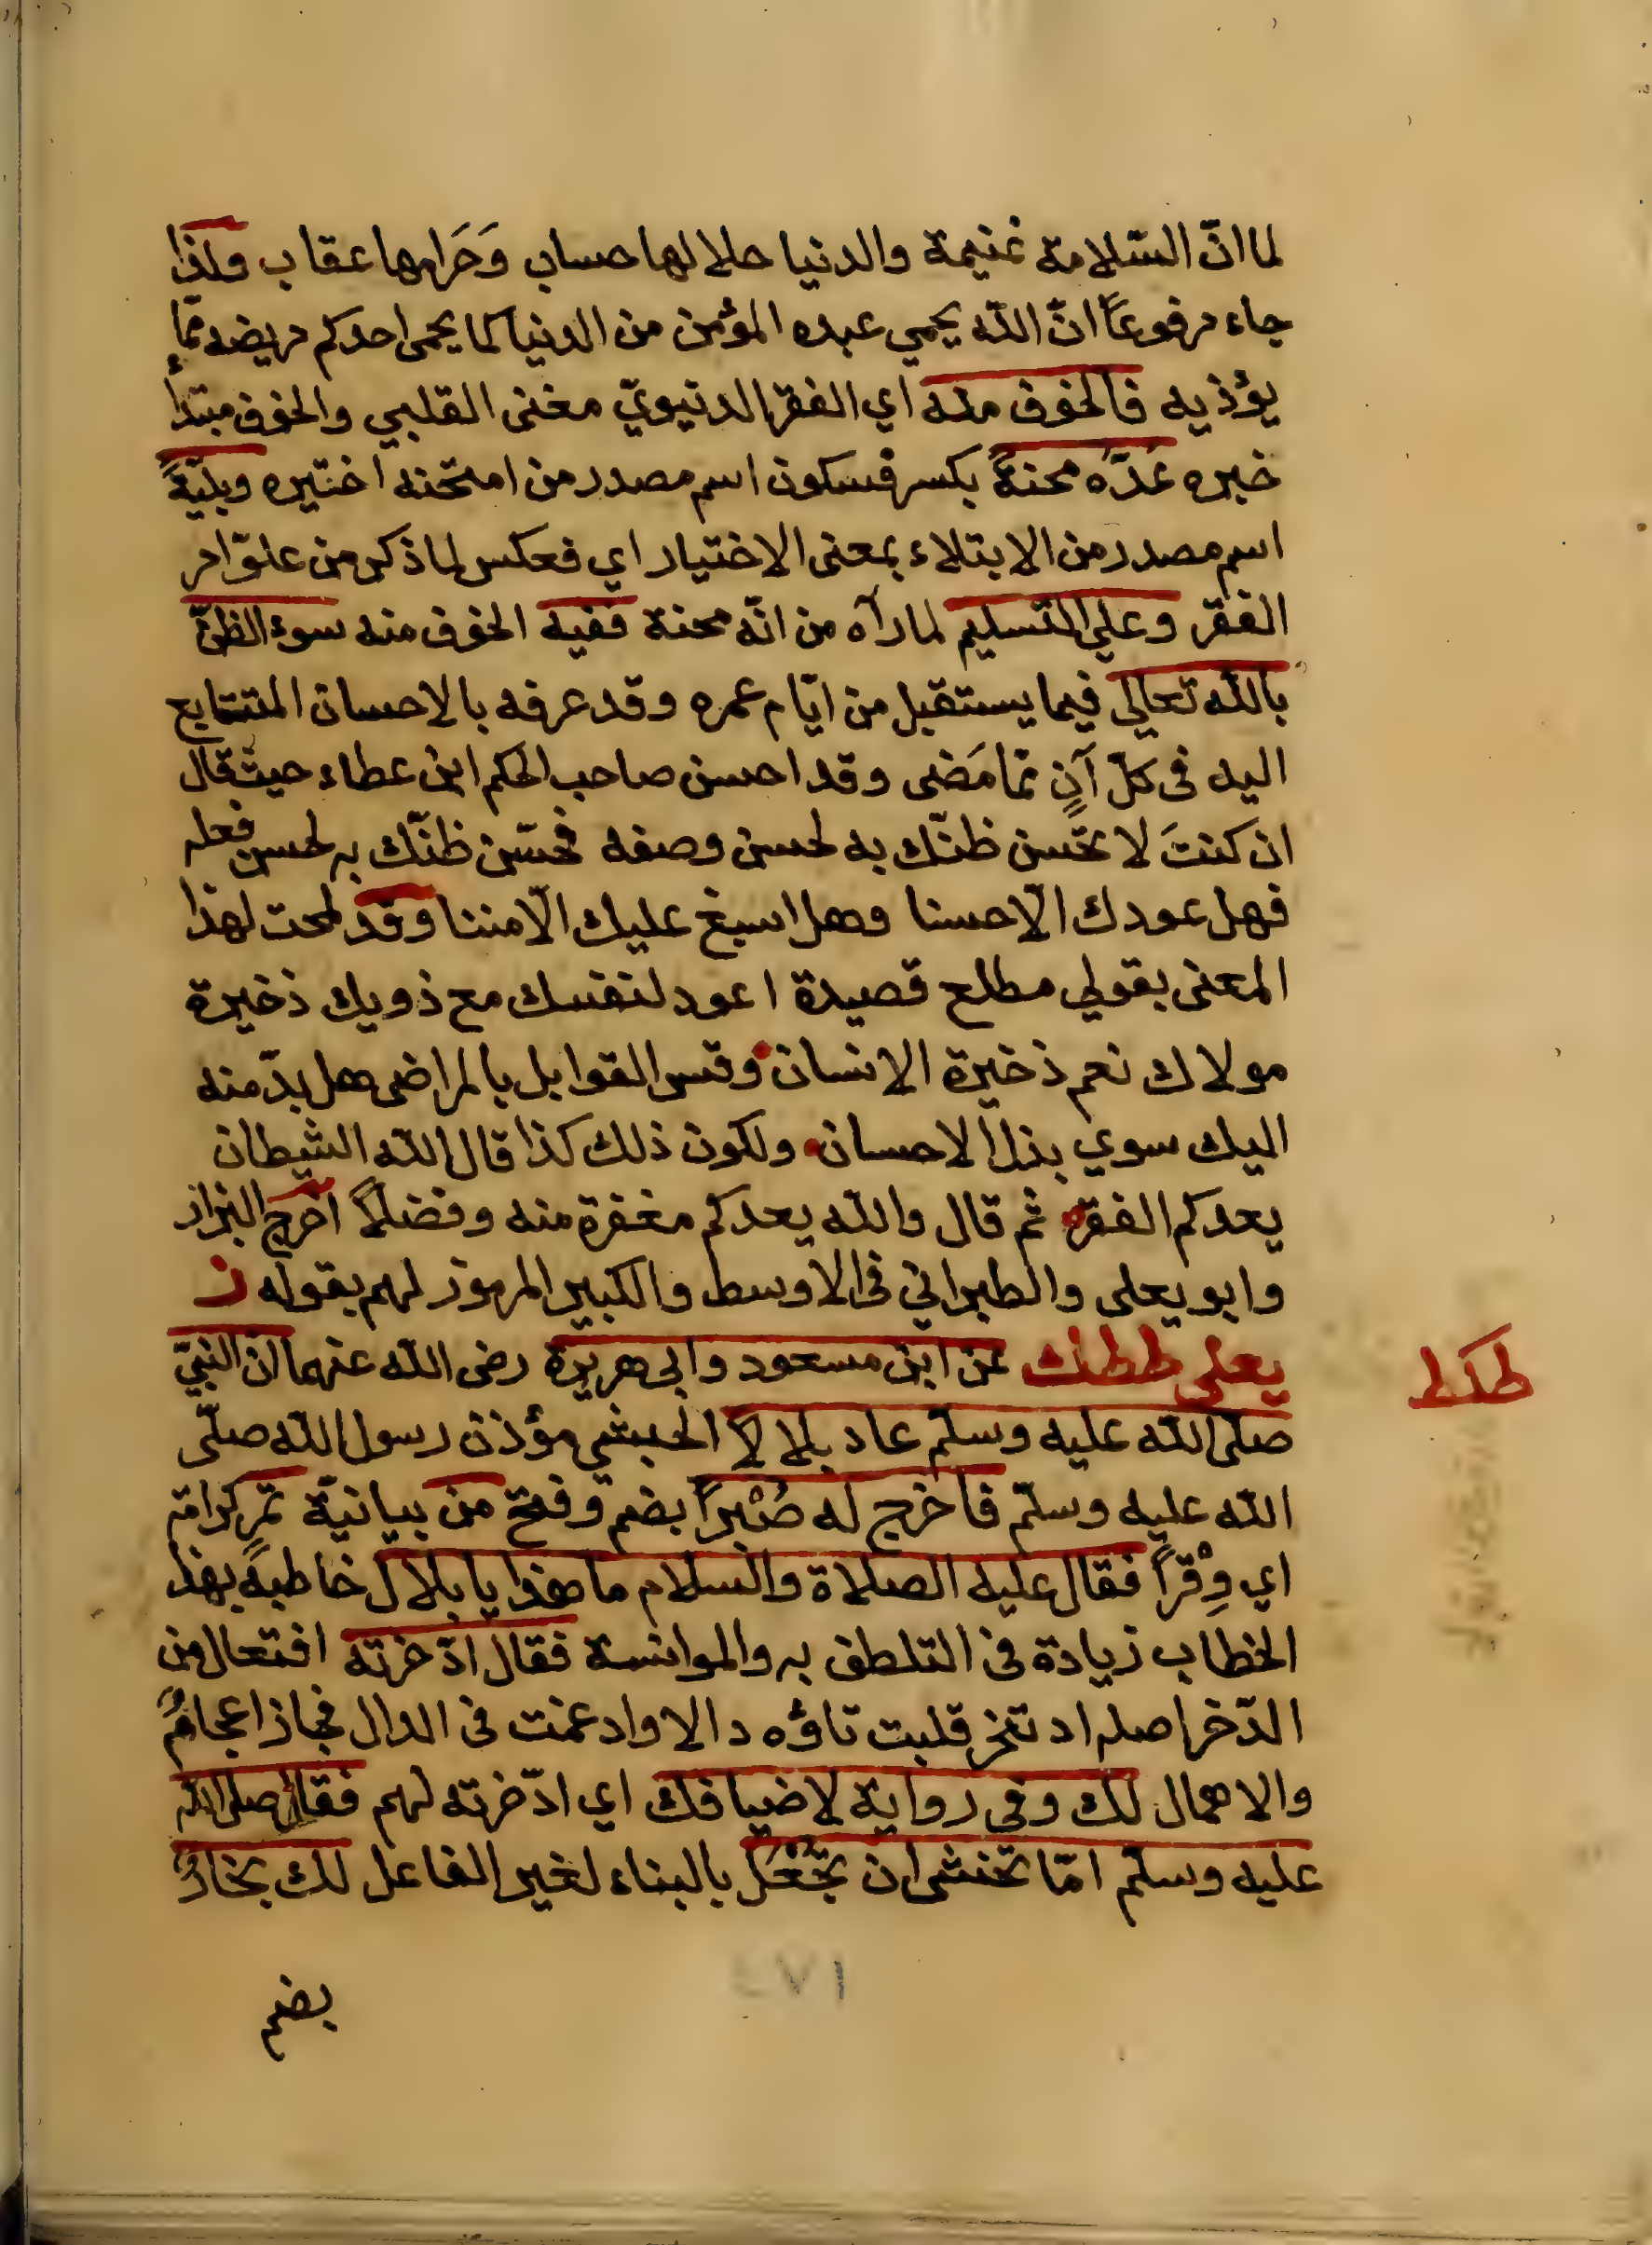 لما انّ السّلامة غنيمة والدنيا حلالها حساب وَحَرامها عقاب ولذا
جاء مرفوعًا انّ الله يحمي عبده المؤمن من الدنيا كما يحمى احدكم مريضه ممّا
يؤذيه فالخوف منه اي الفقر الدنيويّ مغنى القلبي والخوف مبتدأ
خبره عَدّه محنةً بكسر فسكون اسم مصدر من امتحنه اختبره وبليّةً
اسم مصدر من الابتلاء بمعنى الاختيار اي فعكس لما ذكر من علوّ امر
الفقر وعلي التسليم لما رآه من انّه محنة ففيه الخوف منه سوء الظنّ
بالله تعالي فيما يستقبل من ايّام عمره وقد عرفه بالاحسان المتتابع
اليه فى كلّ آنٍ ممّا مَضى وقد احسن صاحب الحكم ابن عطاء حيث قال
ان كنتَ لا تحسن ظنّك به لحسن وصفه فحسّن ظنّك به لحسن فعله
فهل عودك الّا حسنا وهل اسبغ عليك الّا مننا وقد لمحت لهذا
المعنى بقولي مطلع قصيدة اعود لنفسك مع ذويك ذخيرة
مولاك نعم ذخيرة الانسان وقس القوابل بالمراضى هل بدّ منه
اليك سوي بذل الاحسان ولكون ذلك كذا قال الله الشيطان
يعدكم الفقر ثم قال والله يعدكم مغفرة منه وفضلًا اخرج البزار
وابو يعلى والطبراني فى الاوسط والكبير المرموز لهم بقوله ز
يعلى ططك عن ابن مسعود وابى هريرة رضى الله عنهما ان النبيّ
طكط
صلى الله عليه وسلّم عاد بلالا الحبشي مؤذن رسول الله صلّى
الله عليه وسلّم فاخرج له صُبْرًا بضم وفتح من بيانيّة تمرٍ كرامته
اي وِقْرًا فقال عليه الصلاة والسلام ما هذا يا بلال خاطبه بهذا
الخطاب زيادة فى التلطف به والموانسة فقال ادّخرته افتعال من
الدّخر اصله ادتخر قلبت تاؤه دالا وادغمت فى الدال فجاز اعجامُه
والاهمال لك وفى رواية لاضيافك اي ادّخرته لهم فقال صلى الله
عليه وسلّم امّا تخشى ان يُجْعَل بالبناء لغير الفاعل لك بخارٌ
بضم
٤٧١